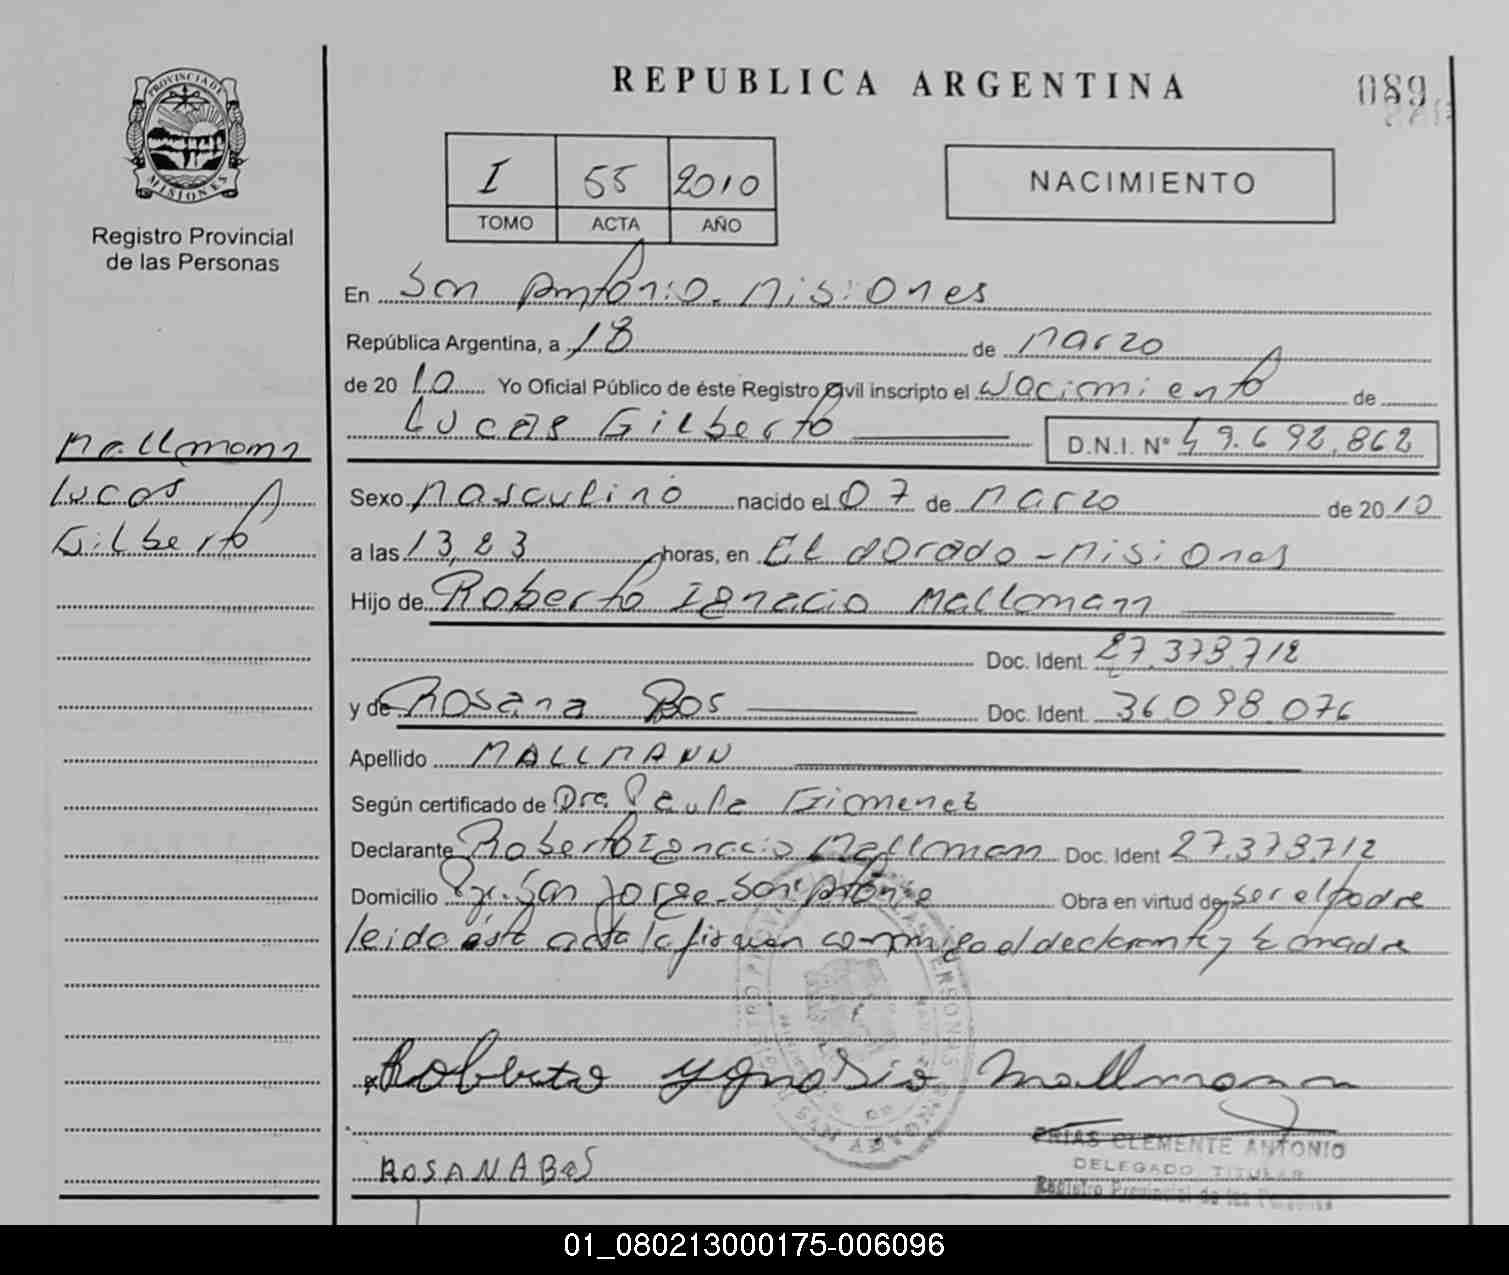 REPUBLICA ARGENTINA
089
PROVINCIA DE
MISIONES
Registro Provincial
de las Personas
I 55 2010
TOMO ACTA AÑO
NACIMIENTO
En San Antonio. Misiones
República Argentina, a 18 de Marzo
de 2010 Yo Oficial Público de éste Registro Civil inscripto el Nacimiento de
Lucas Gilberto D.N.I. Nº 49.692.862
Mallmann
Lucas
Gilberto
Sexo Masculino nacido el 07 de Marzo de 2010
a las 13,23 horas, en El dorado - Misiones
Hijo de Roberto Ignacio Mallmann
Doc. Ident. 27.373.712
y de Rosana Bos Doc. Ident. 36.098.076
Apellido MALLMANN
Según certificado de Dra. Paula Gimenez
Declarante Roberto Ignacio Mallmann Doc. Ident 27.373.712
Domicilio San Jorge - San Antonio Obra en virtud de ser el padre
leido ésta acta la firman conmigo el declarante y la madre
Roberto Ygnasio Mallmann
FRIAS CLEMENTE ANTONIO
DELEGADO TITULAR
Registro Provincial de las Personas
ROSANA BOS
01_080213000175-006096